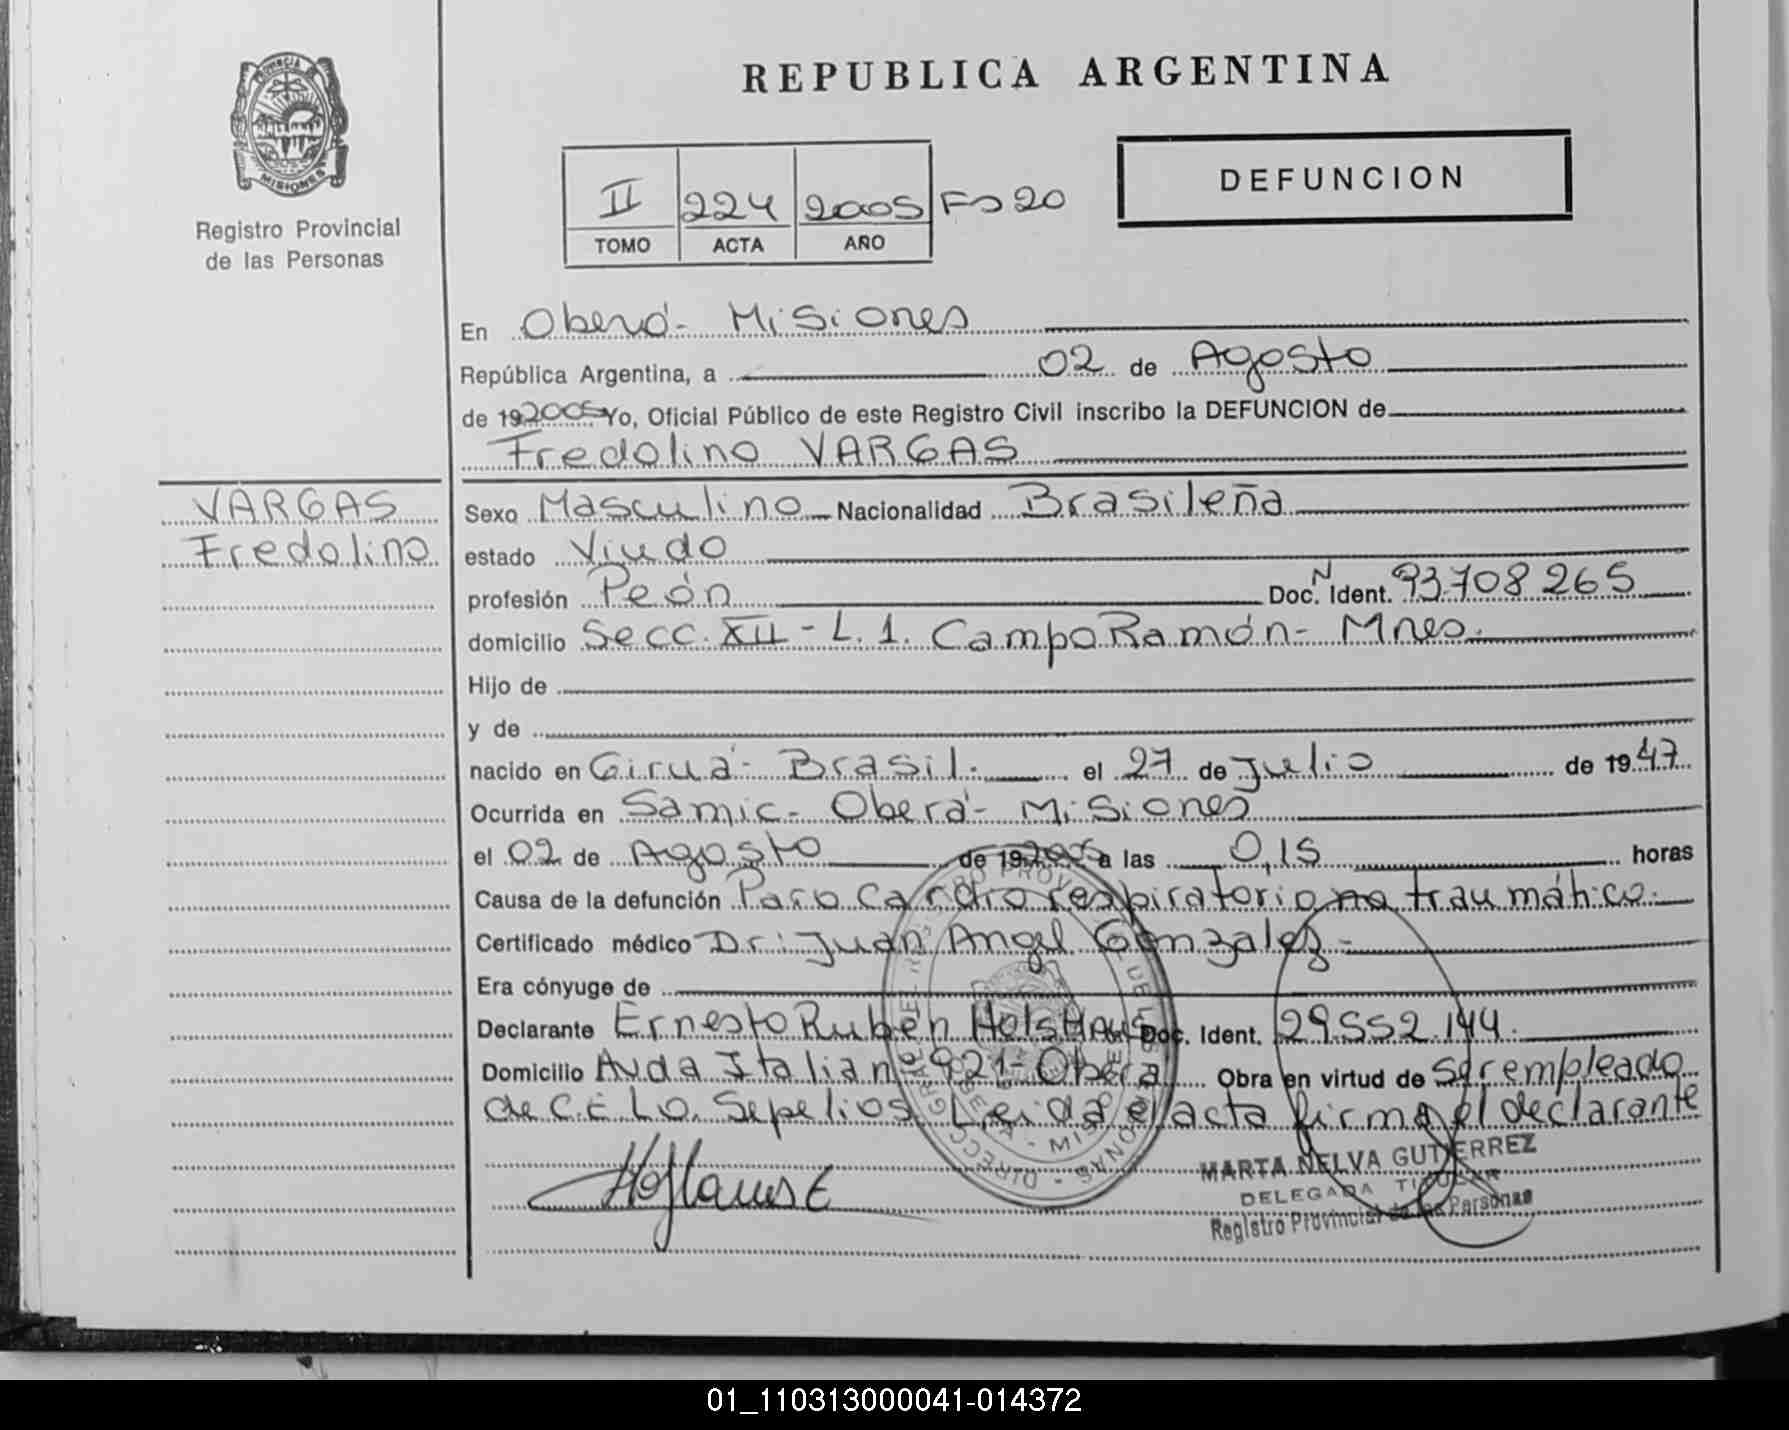 PROVINCIA DE
MISIONES
Registro Provincial
de las Personas
REPUBLICA ARGENTINA
II 224 2005 Fo 20
TOMO ACTA AÑO
DEFUNCION
En Oberá- Misiones
República Argentina, a 02 de Agosto
de 19 2005 Yo, Oficial Público de este Registro Civil inscribo la DEFUNCION de
Fredolino VARGAS
VARGAS
Fredolino
Sexo Masculino Nacionalidad Brasileña
estado Viudo
profesión Peón Doc. N Ident. 93.708.265
domicilio Secc. XII - L. 1. Campo Ramón- Mnes.
Hijo de
y de
nacido en Giruá- Brasil. el 27 de Julio de 1947
Ocurrida en Samic- Oberá- Misiones
el 02 de Agosto de 19 2005 a las 0,15 horas
Causa de la defunción Paro Cardiorespiratorio no traumático.
Certificado médico Dr: Juan Angel Gonzalez-
Era cónyuge de
Declarante Ernesto Rubén Doc. Ident. 29.552.144.
Domicilio Avda Italia nº 921- Oberá Obra en virtud de ser empleado
de C.E.L.O. Sepelios. Leida el acta firma el declarante
MARTA NELVA GUTIERREZ
DELEGADA TITULAR
Registro Provincial de las Personas
01_110313000041-014372